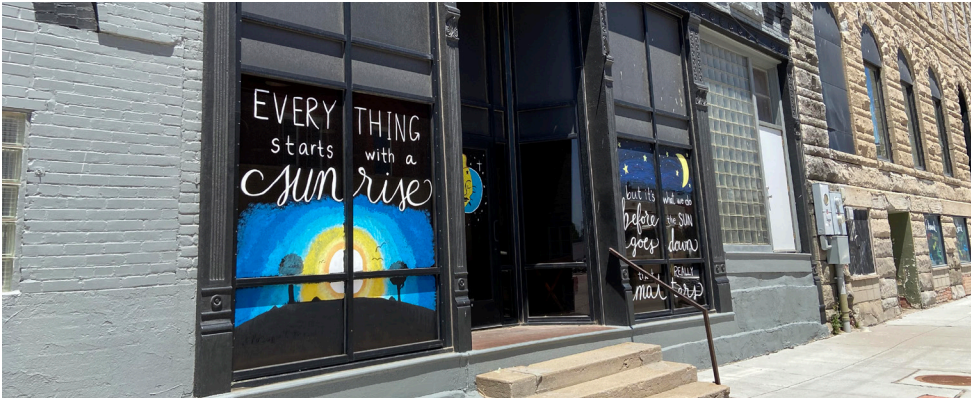 EVERY THING
starts with a
sun rise
but it's what we do
before the SUN
goes down
that REALLY
matters